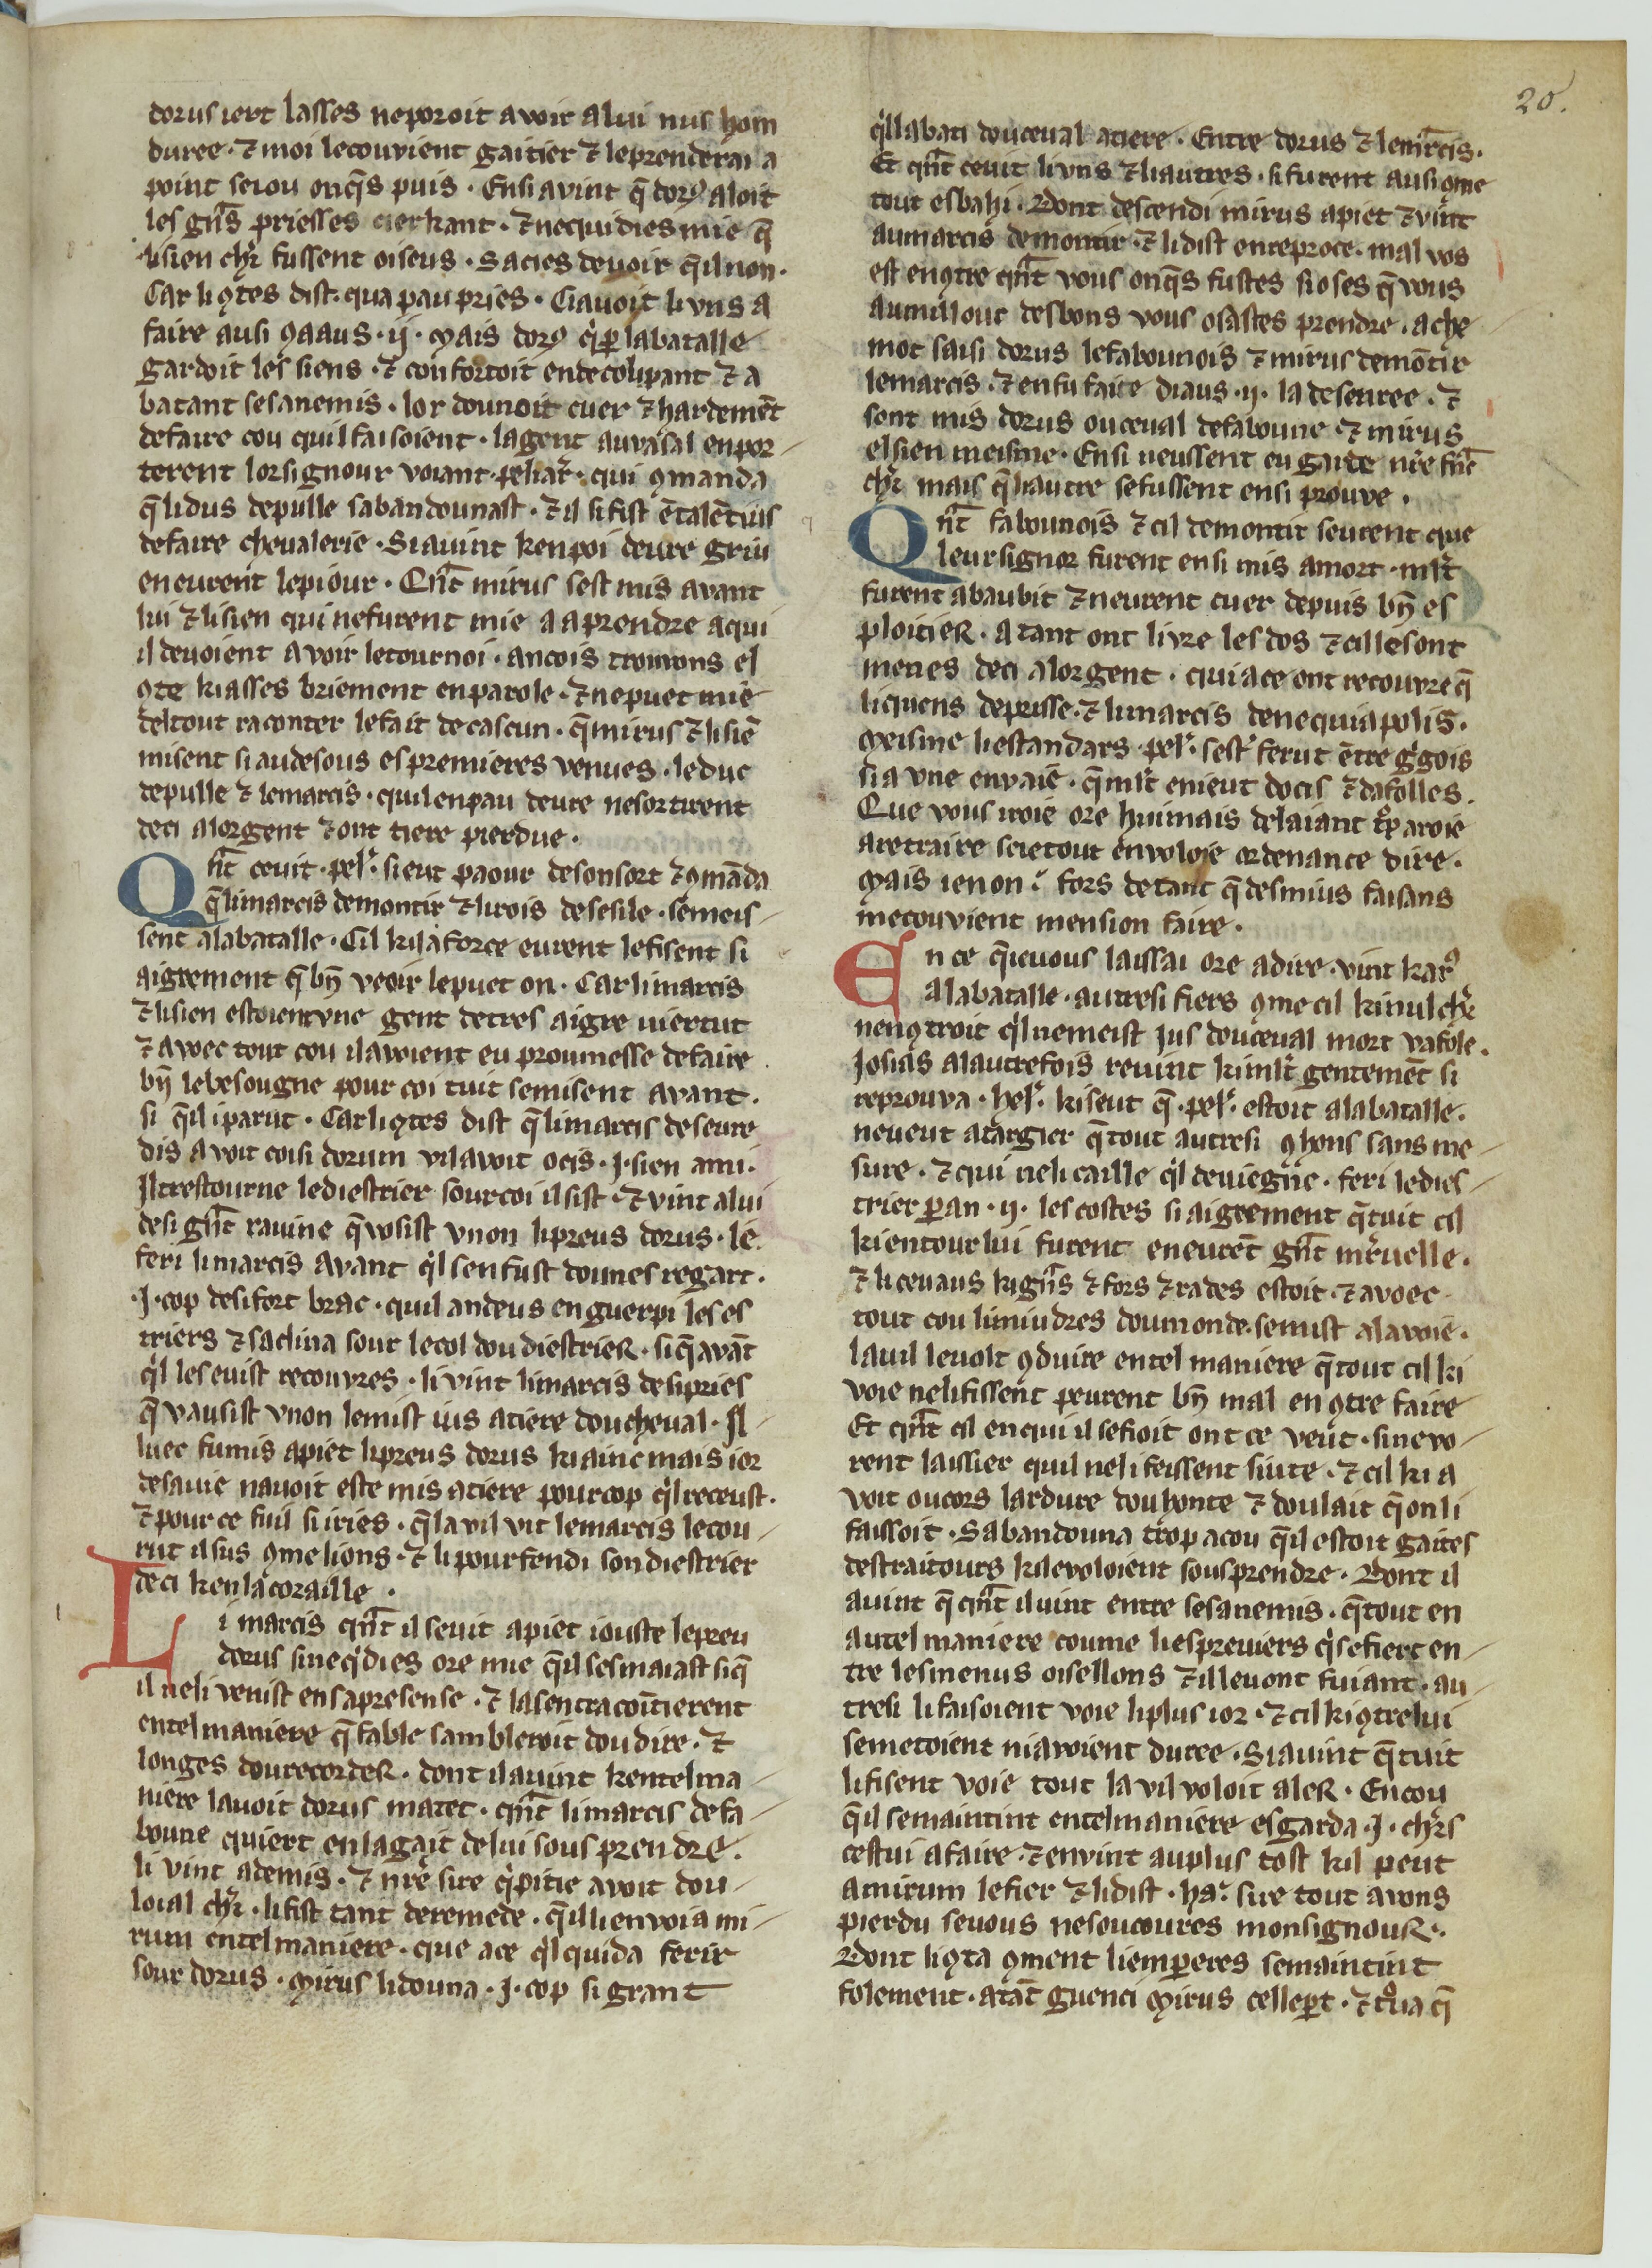 20.
dorus iert lasses neporoit avoir alui nus hom
duree · ⁊ moi lecouvient gaitier ⁊ leprenderai a
point seiou onq̄s puis · Ensi avint q̄ dorꝰ aloit
les gñs priesses cierkant · ⁊ nequidies mie q̄
lisien chr̄ fussent oiseus · Sacies devoir q̄il non ·
Car li ꝯtes dist · qua pau pries · Ciavoit li vns a
faire ausi ꝯaaus · ij · Mais dorꝰ q̇ ꝑ labatalle
gardoit les siens · ⁊ confortoit endecolupant ⁊ a
batant sesanemis · lor dounoit cuer ⁊ hardemēt
defaire cou quil faisoient · lagent auvasal enpor-
terent lorsignour voiant · peliar̄ · qui ꝯmanda
q̄ lidus depulle sabandounast · ⁊ il si fist ētalētuis
defaire chevalerie · Siavint kenpoi deure griu
eneurent lepiour · Qn̄t mirus sest mis avant
lui ⁊ lisien qui nefurent mie a aprendre aqui
il devoient avoir letournoi · ancois trouvons el
ꝯte kiasses briement enparole · ⁊ nepuet mie
deltout raconter lefait decascun · q̄ mirus ⁊ lisiē
misent si audesous espremieres venues · leduc
depulle ⁊ lemarcis · quil enpau deure nesorturent
deci alorgent ⁊ ont tiere pierdue ·
Qn̄t cevit · pel̄ · sieut paour desonsort ⁊ ꝯmāda
q̄ limarcis demontir ⁊ lirois desesile · semeis-
sent alabatalle · Cil kila force eurent lefisent si
aigrement q̄ bn̄ veoir lepuet on · Car limarcis
⁊ lisien estoient vne gent detres aigre viertut
⁊ avec tout cou il avoient eu proumesse defaire
bn̄ lebesougne pour coi tuit semisent avant ·
si q̄il iparut · Car li ꝯtes dist q̄ limarcis deseure
dis avoit coisi dorum v il avoit ocis · j · sien ami ·
Il trestourne lediestrier sour coi il sist · ⁊ vint alui
desi gn̄t ravine q̄ vosist v non lipreus dorus · le
feri limarcis avant q̇l senfust dounes regart ·
· j · cop desifort brac · quil andeus enguerpi leses
triers ⁊ saclina sour lecol dou diestrieR · si q̄ avāt
q̇l les euist recouvres · li vint limarcis desipries
q̄ vausist v non lemist ius atiere doucheval · Il-
luec fumis apiet lipreus dorus ki ainc mais ior
desavie navoit este mis atiere pour cop q̇l receust ·
⁊ pour ce fuil si iries · q̄ la v il vit lemarcis lecou-
rut il sus ꝯme lions · ⁊ li pourfendi son diestrier
deci kenla coraille ·
Li marcis qn̄t il sevit apiet iouste lepreu
dorus sineq̇dies ore mie q̄il sesmaiast si q̄
il neli venist ensapresense · ⁊ lasentracoītierent
entel maniere q̄ fable sambleroit dou dire · ⁊
longes dourecordeR · dont il avint kentelma-
niere lavoit dorus matet · qn̄t limarcis defa-
boune quiert enlagait delui sousprendre ·
li vint ademis · ⁊ nr̄e sire q̇ pitie avoit dou-
loial chr̄ · lifist tant deremede · q̄il lienvoia mi-
rum entelmaniere · que ace q̇l quida ferir
sour dorus · Mirus lidouna · j · cop si grant
q̇l labati douceval atiere · Entre dorus ⁊ lemr̄cis ·
Et qn̄t cevit li vns ⁊ liautres · sifurent ausi ꝯme
tout esbahi · Dont descendi mirus apiet ⁊ vint
aumarcis demontir · ⁊ lidist enreproce · mal vos
est enꝯtre qn̄t vous onq̄s fustes sioses q̄ vous
aumillour desbons vous osastes prendre · a che
mot saisi dorus lefabounois ⁊ mirus demōtir
lemarcis · ⁊ enfu faite diaus · ij · la desevree · ⁊
sont mis dorus ouceval defaboune · ⁊ mirus
elsien meisme · Ensi neussent eu garde nr̄e fn̄c
chr̄ mais q̄ liautre sefussent ensi prouve ·
Qn̄t fabounois ⁊ cil demontir seurent que
leursignor furent ensi mis amort · ml̄t
furent abaubit ⁊ neurent cuer depuis bn̄ es
ploitieR · atant ont livre les dos ⁊ cil lesont
menes deci alorgent · qui ace ont recouvre q̄
liquens deprisse · ⁊ limarcis denequiapolis ·
Meisme liestandars · pel̄ · sest ferut ētre gͥgois
si a vne envaïe · q̄ ml̄t enieut docis ⁊ dafolles ·
Que vous iroie ore huimais delaiant tͦp aroie
aretraire scietout envoloie ordenance dire ·
Mais ienon · fors detant q̄ desmius faisans
mecouvient mension faire ·
En ce q̄ ievous laissai ore adire · vint karꝰ
alabatalle · autresi fiers ꝯme cil ki nul chr̄
nenꝯtroit q̇l nemeist ius douceval mort v afole ·
Josias alautrefois revint ki ml̄t gentemēt si
reprouva · hel̄ · kiseut q̄ · pel̄ · estoit alabatalle ·
neveut atargier q̄ tout autresi ꝯ hons sans me-
sure · ⁊ qui neli caille q̇l deviegne · feri ledies-
trier ꝑ an · ij · les costes si aigrement q̄ tuit cil
kientour lui furent eneurēt gn̄t mr̄uelle ·
⁊ li cevaus ki gn̄s ⁊ fors ⁊ rades estoit · ⁊ avoec
tout cou li miudres doumonde · semist alavoie ·
lau il levolt ꝯduire entel maniere q̄ tout cil ki
voie nelifissent peurent bn̄ mal enꝯtre faire
Et qn̄t cil enqui il sefioit ont ce veut · sinevo-
rent laissier quil neli feissent siute · ⁊ cil ki a
voit oucors lardure douhonte ⁊ doulait q̄ on li
faissoit · Sabandouna trop acou q̄il estoit gaites
destraitours kilevoloient sousprendre · Dont il
avint q̄ qn̄t il vint entre sesanemis · q̄ tout en
autel maniere coume liespreviers q̇ sefiert en-
tre lesmenus oisellons ⁊ il levont fuiant · au-
tresi lifaisoient voie liplus ior · ⁊ cil ki ꝯtrelui
semetoient niavoient duree · Siavint q̄ tuit
lifisent voie tout la v il voloit aleR · Encou
q̄il semaintint entelmaniere esgarda · j · chr̄s
cestui afaire · ⁊ envint auplus tost kil peut
amirum lefier ⁊ lidist · ha · sire tout avons
pierdu sevous nesoucoures monsignouR ·
Dont li ꝯta ꝯment liemꝑeres semaintint
folement · atāt guenci Mirus celleꝑt · ⁊ tͦua q̄